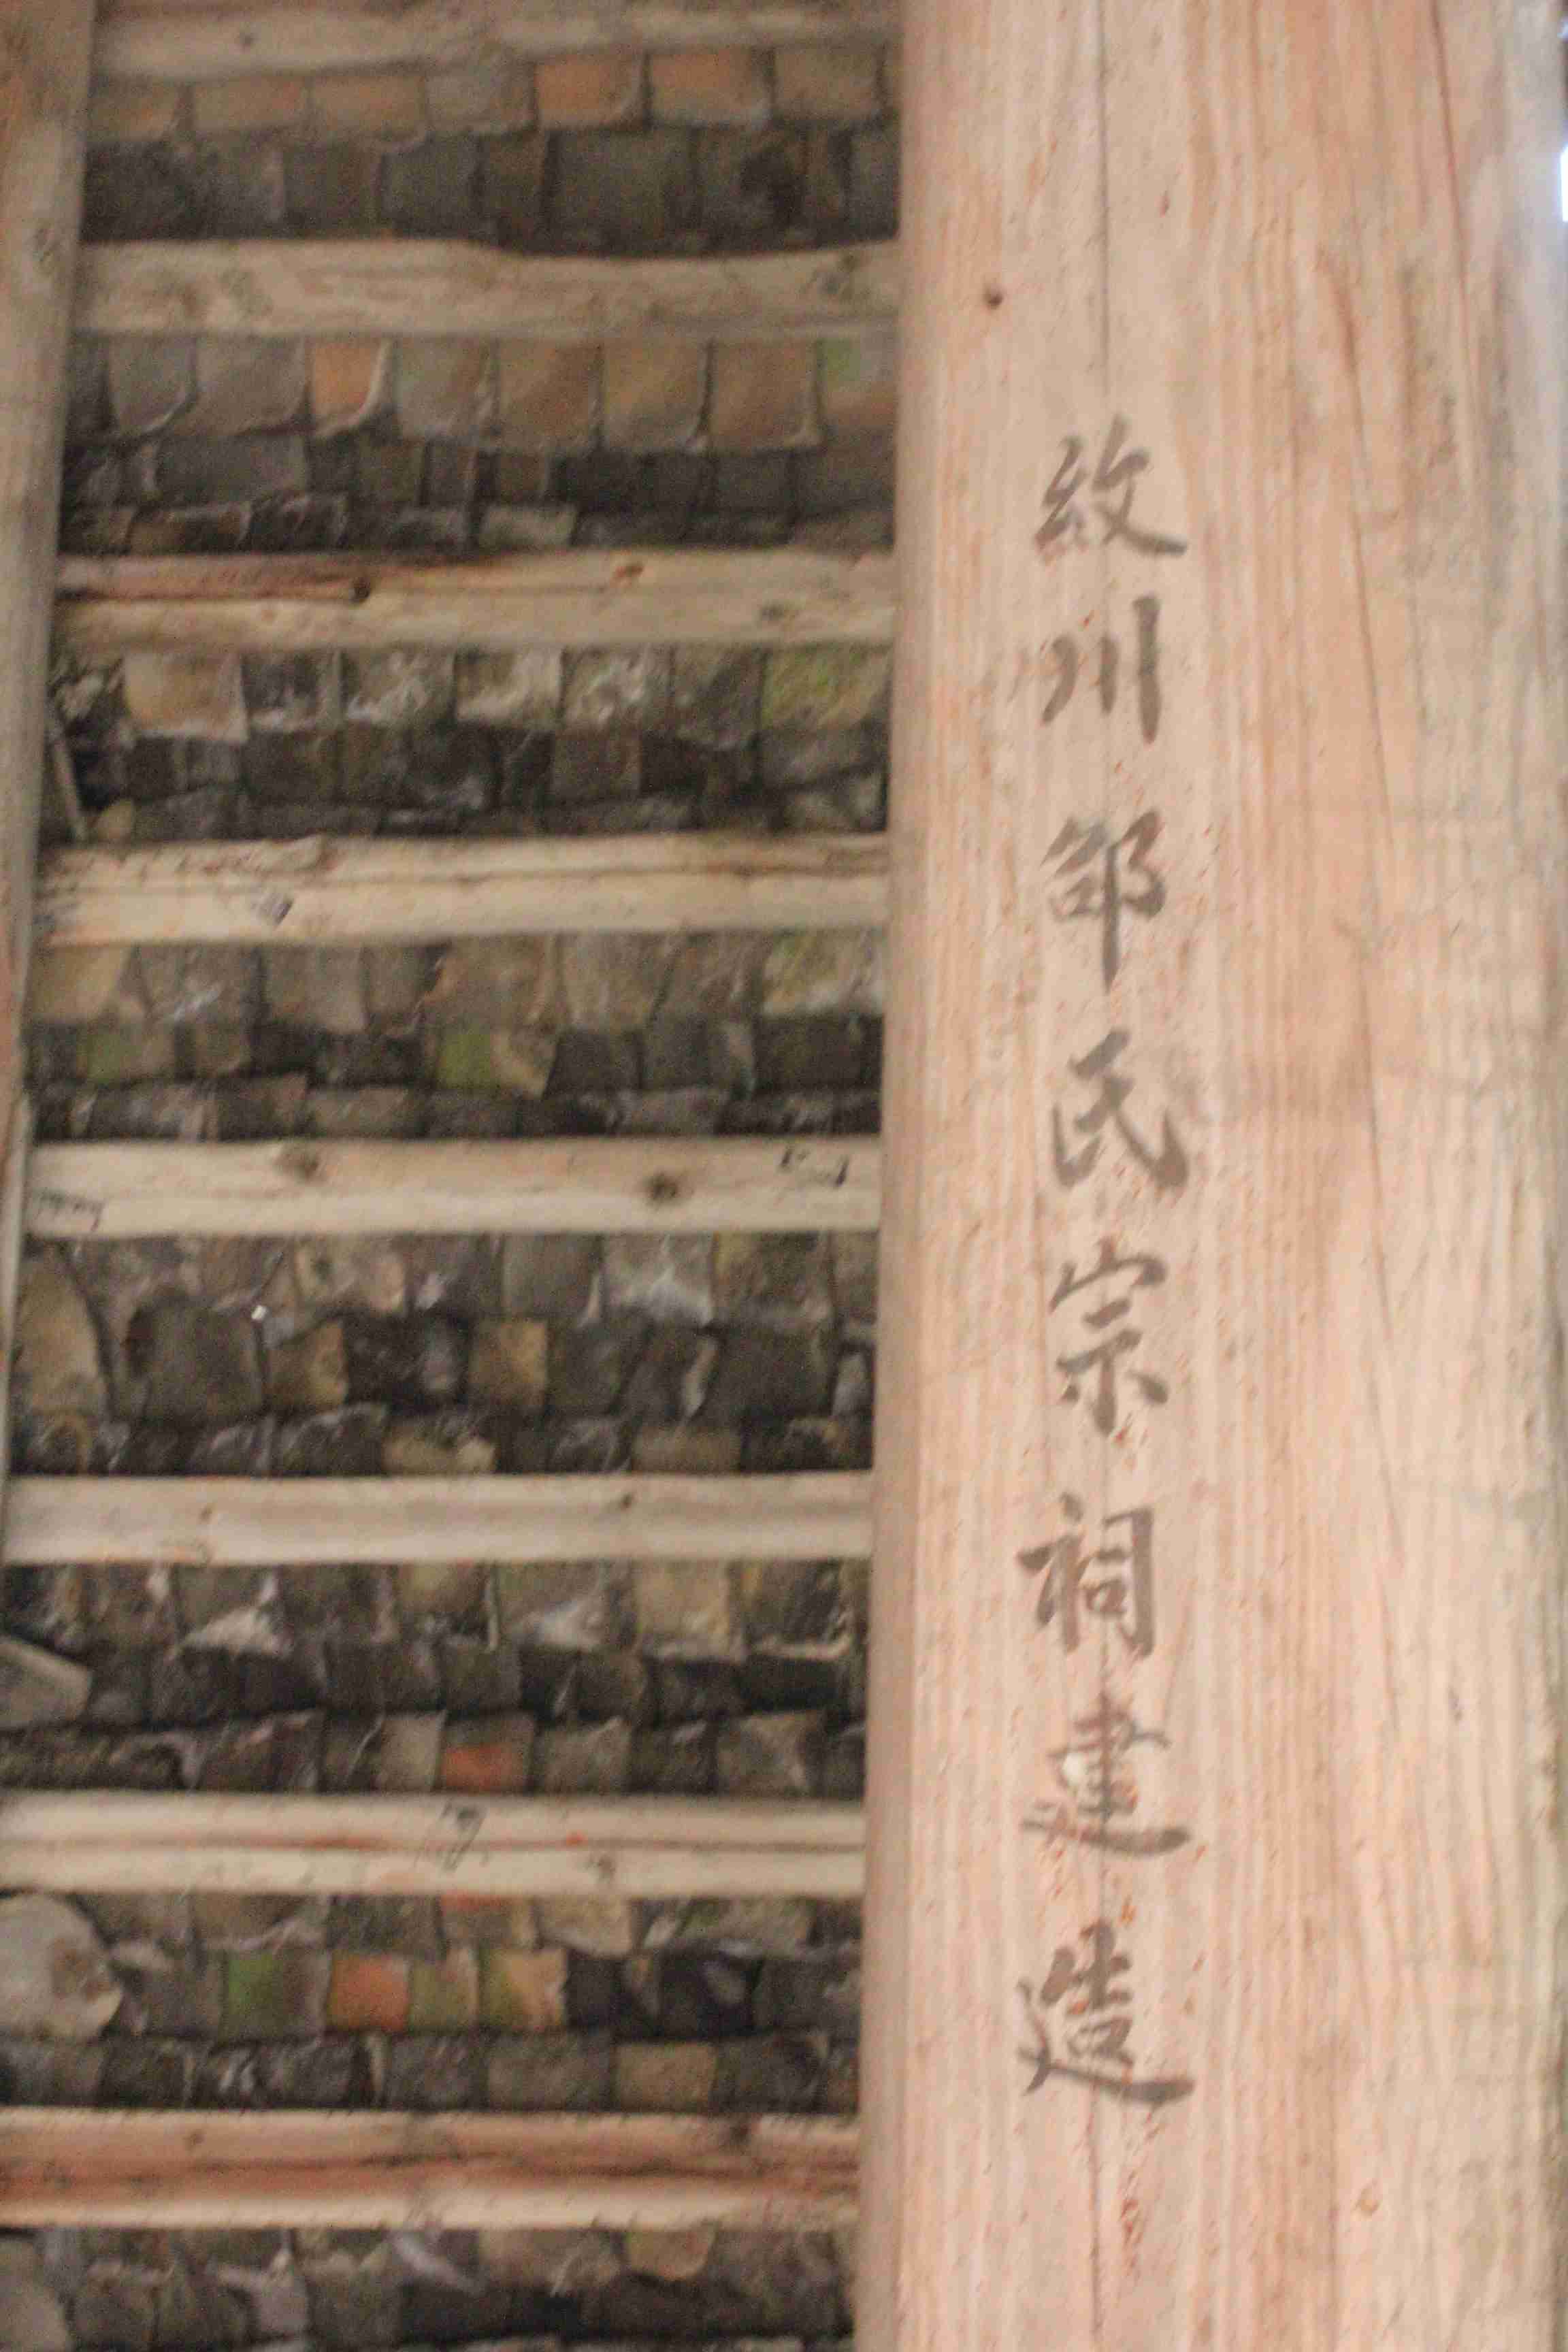 紋川邵氏宗祠建造